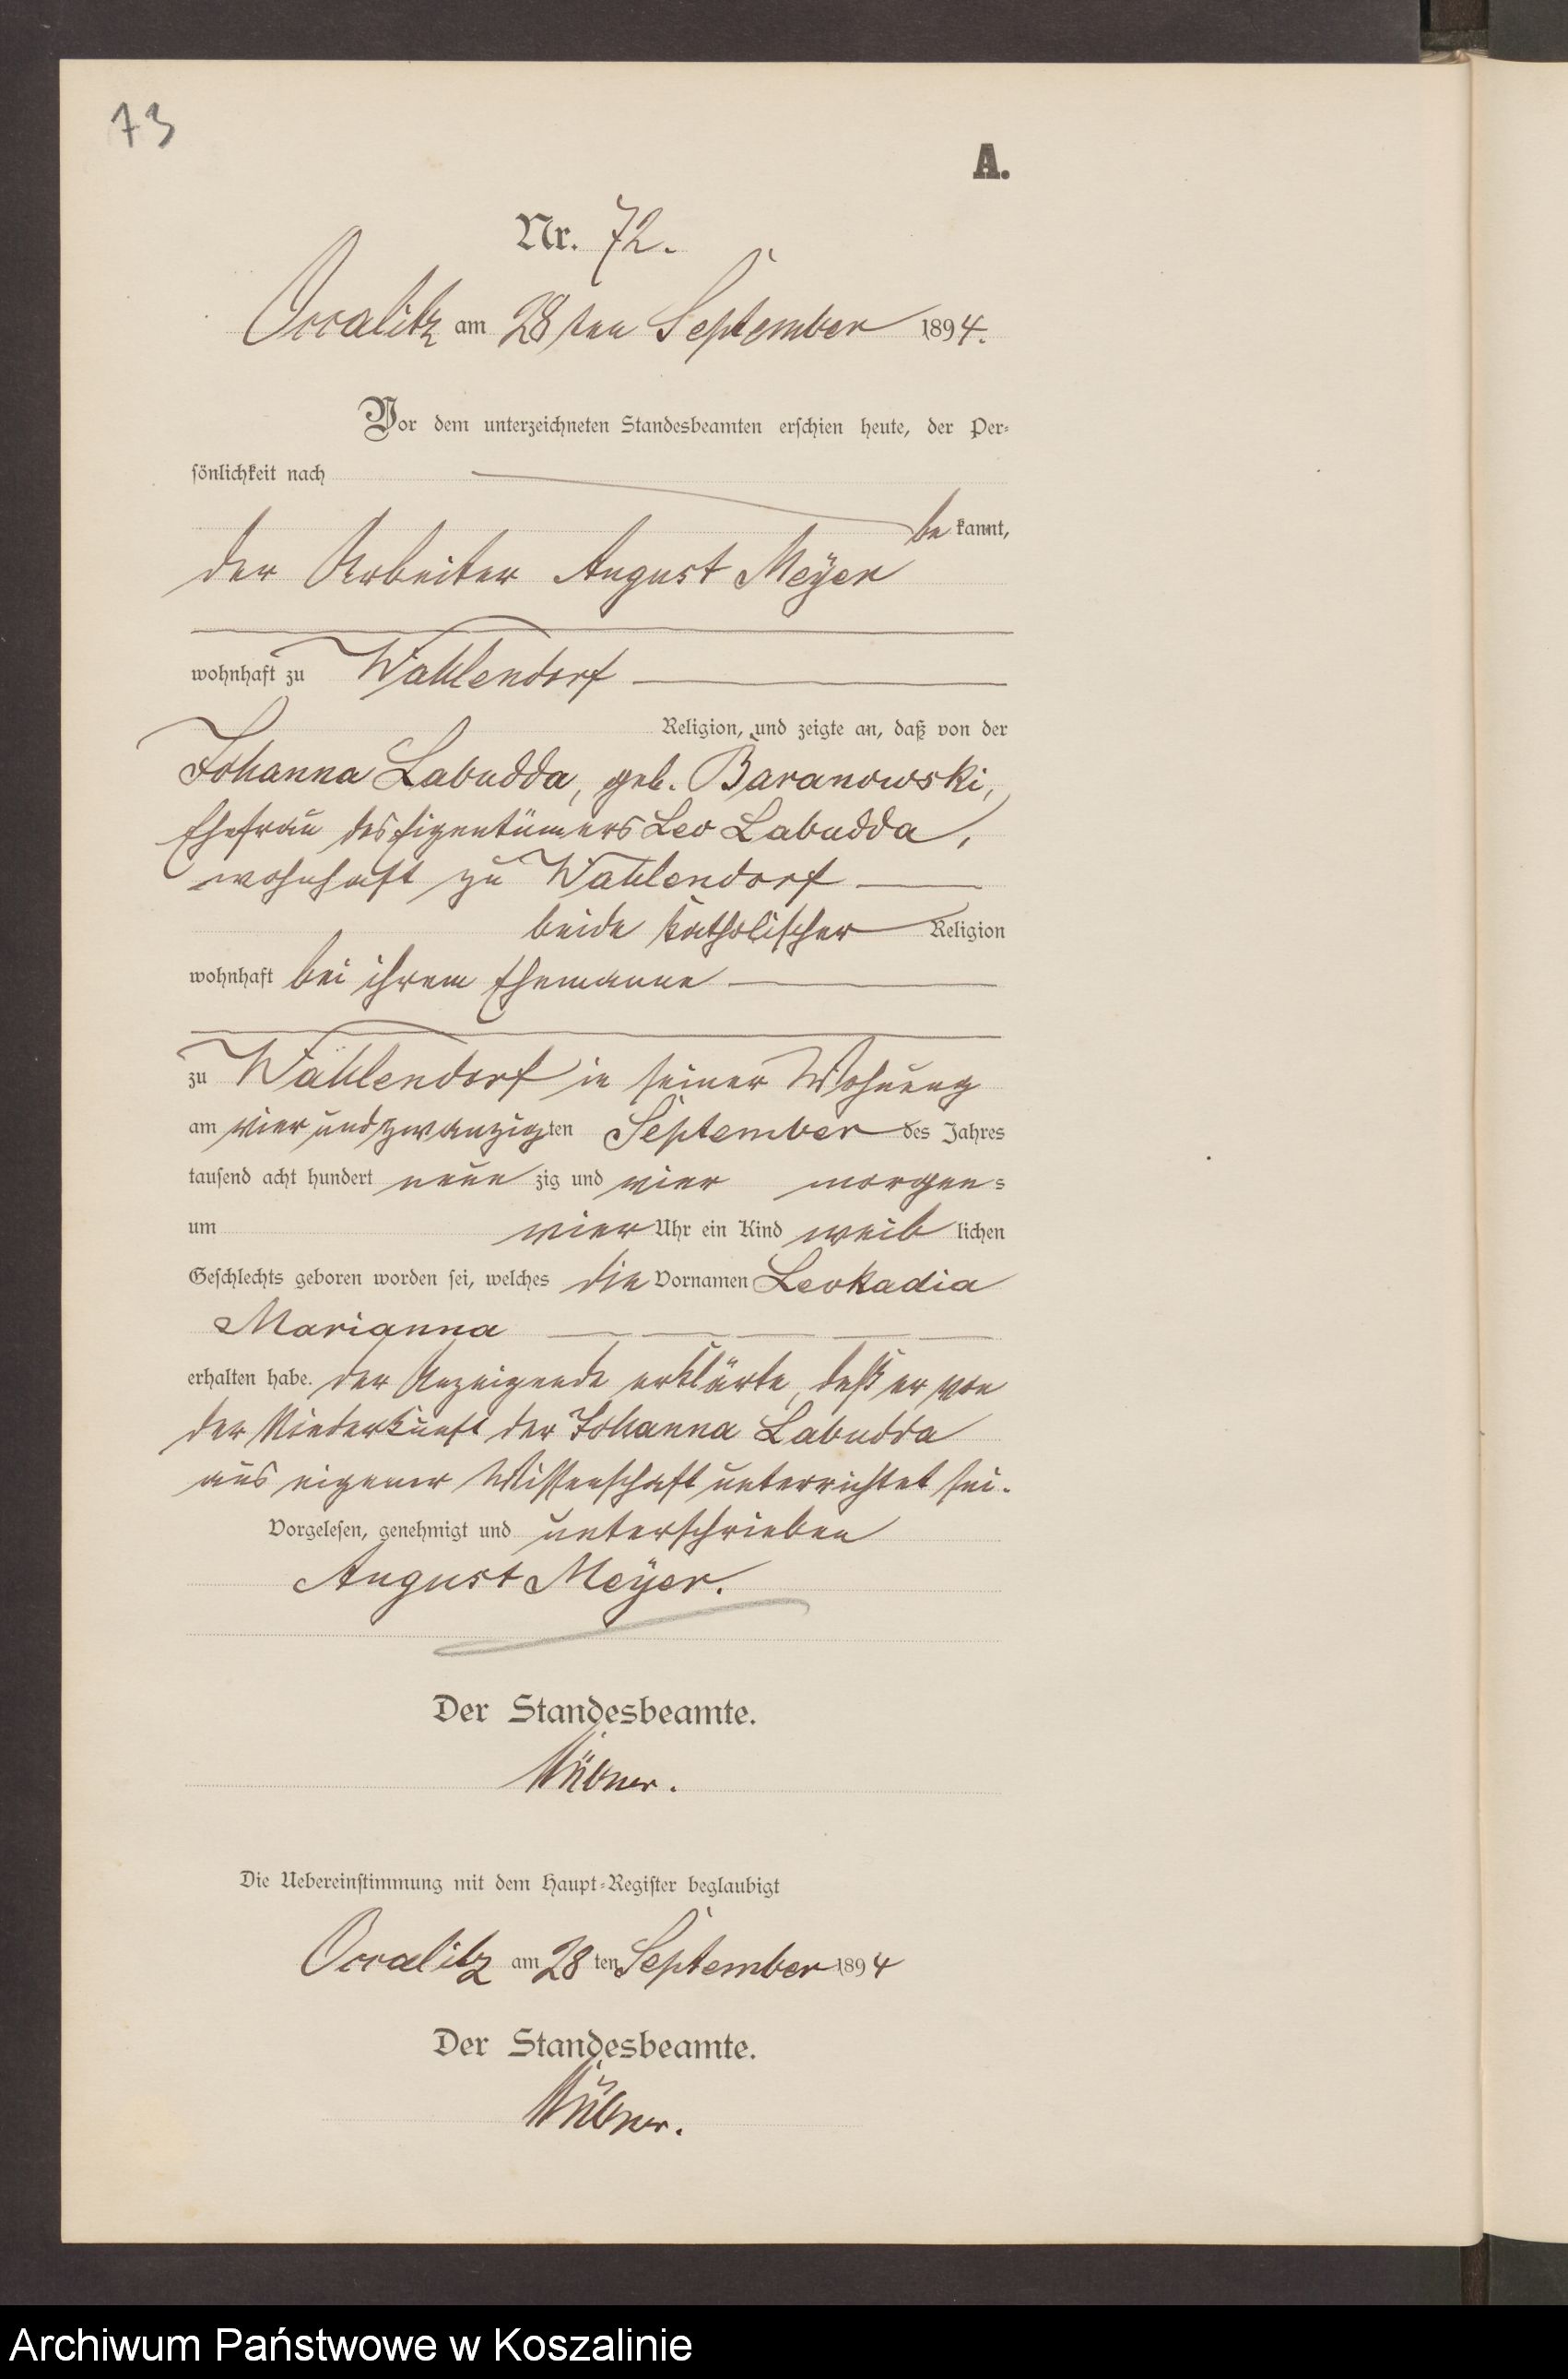 73
A.
Nr. 72.
Occalitz am 28ten September 1894.
Vor dem unterzeichneten Standesbeamten erschien heute, der Per-
sönlichkeit nach
bekannt,
der Arbeiter August Meÿer
wohnhaft zu Wahlendorf
Religion, und zeigte an, daß von der
Johanna Labudda, geb. Baranowski,
Ehefrau des Eigentümers Leo Labudda,
wohnhaft zu Wahlendorf
beide katholischer Religion
wohnhaft bei ihrem Ehemanne
zu Wahlendorf in seiner Wohnung
am vier und zwanzigten September des Jahres
tausend acht hundert neun zig und vier morgen-
um vier Uhr ein Kind weiblichen
Geschlechts geboren worden sei, welches die Vornamen Leokadia
Marianna
erhalten habe. Der Anzeigende erklärte, daß er von
der Niederkunft der Johanna Labudda
aus eigener Wissenschaft unterrichtet sei.
Vorgelesen, genehmigt und unterschrieben
August Meÿer.
Der Standesbeamte.
Die Uebereinstimmung mit dem Haupt-Register beglaubigt
Occalitz am 28ten September 1894
Der Standesbeamte.
Archiwum Państwowe w Koszalinie